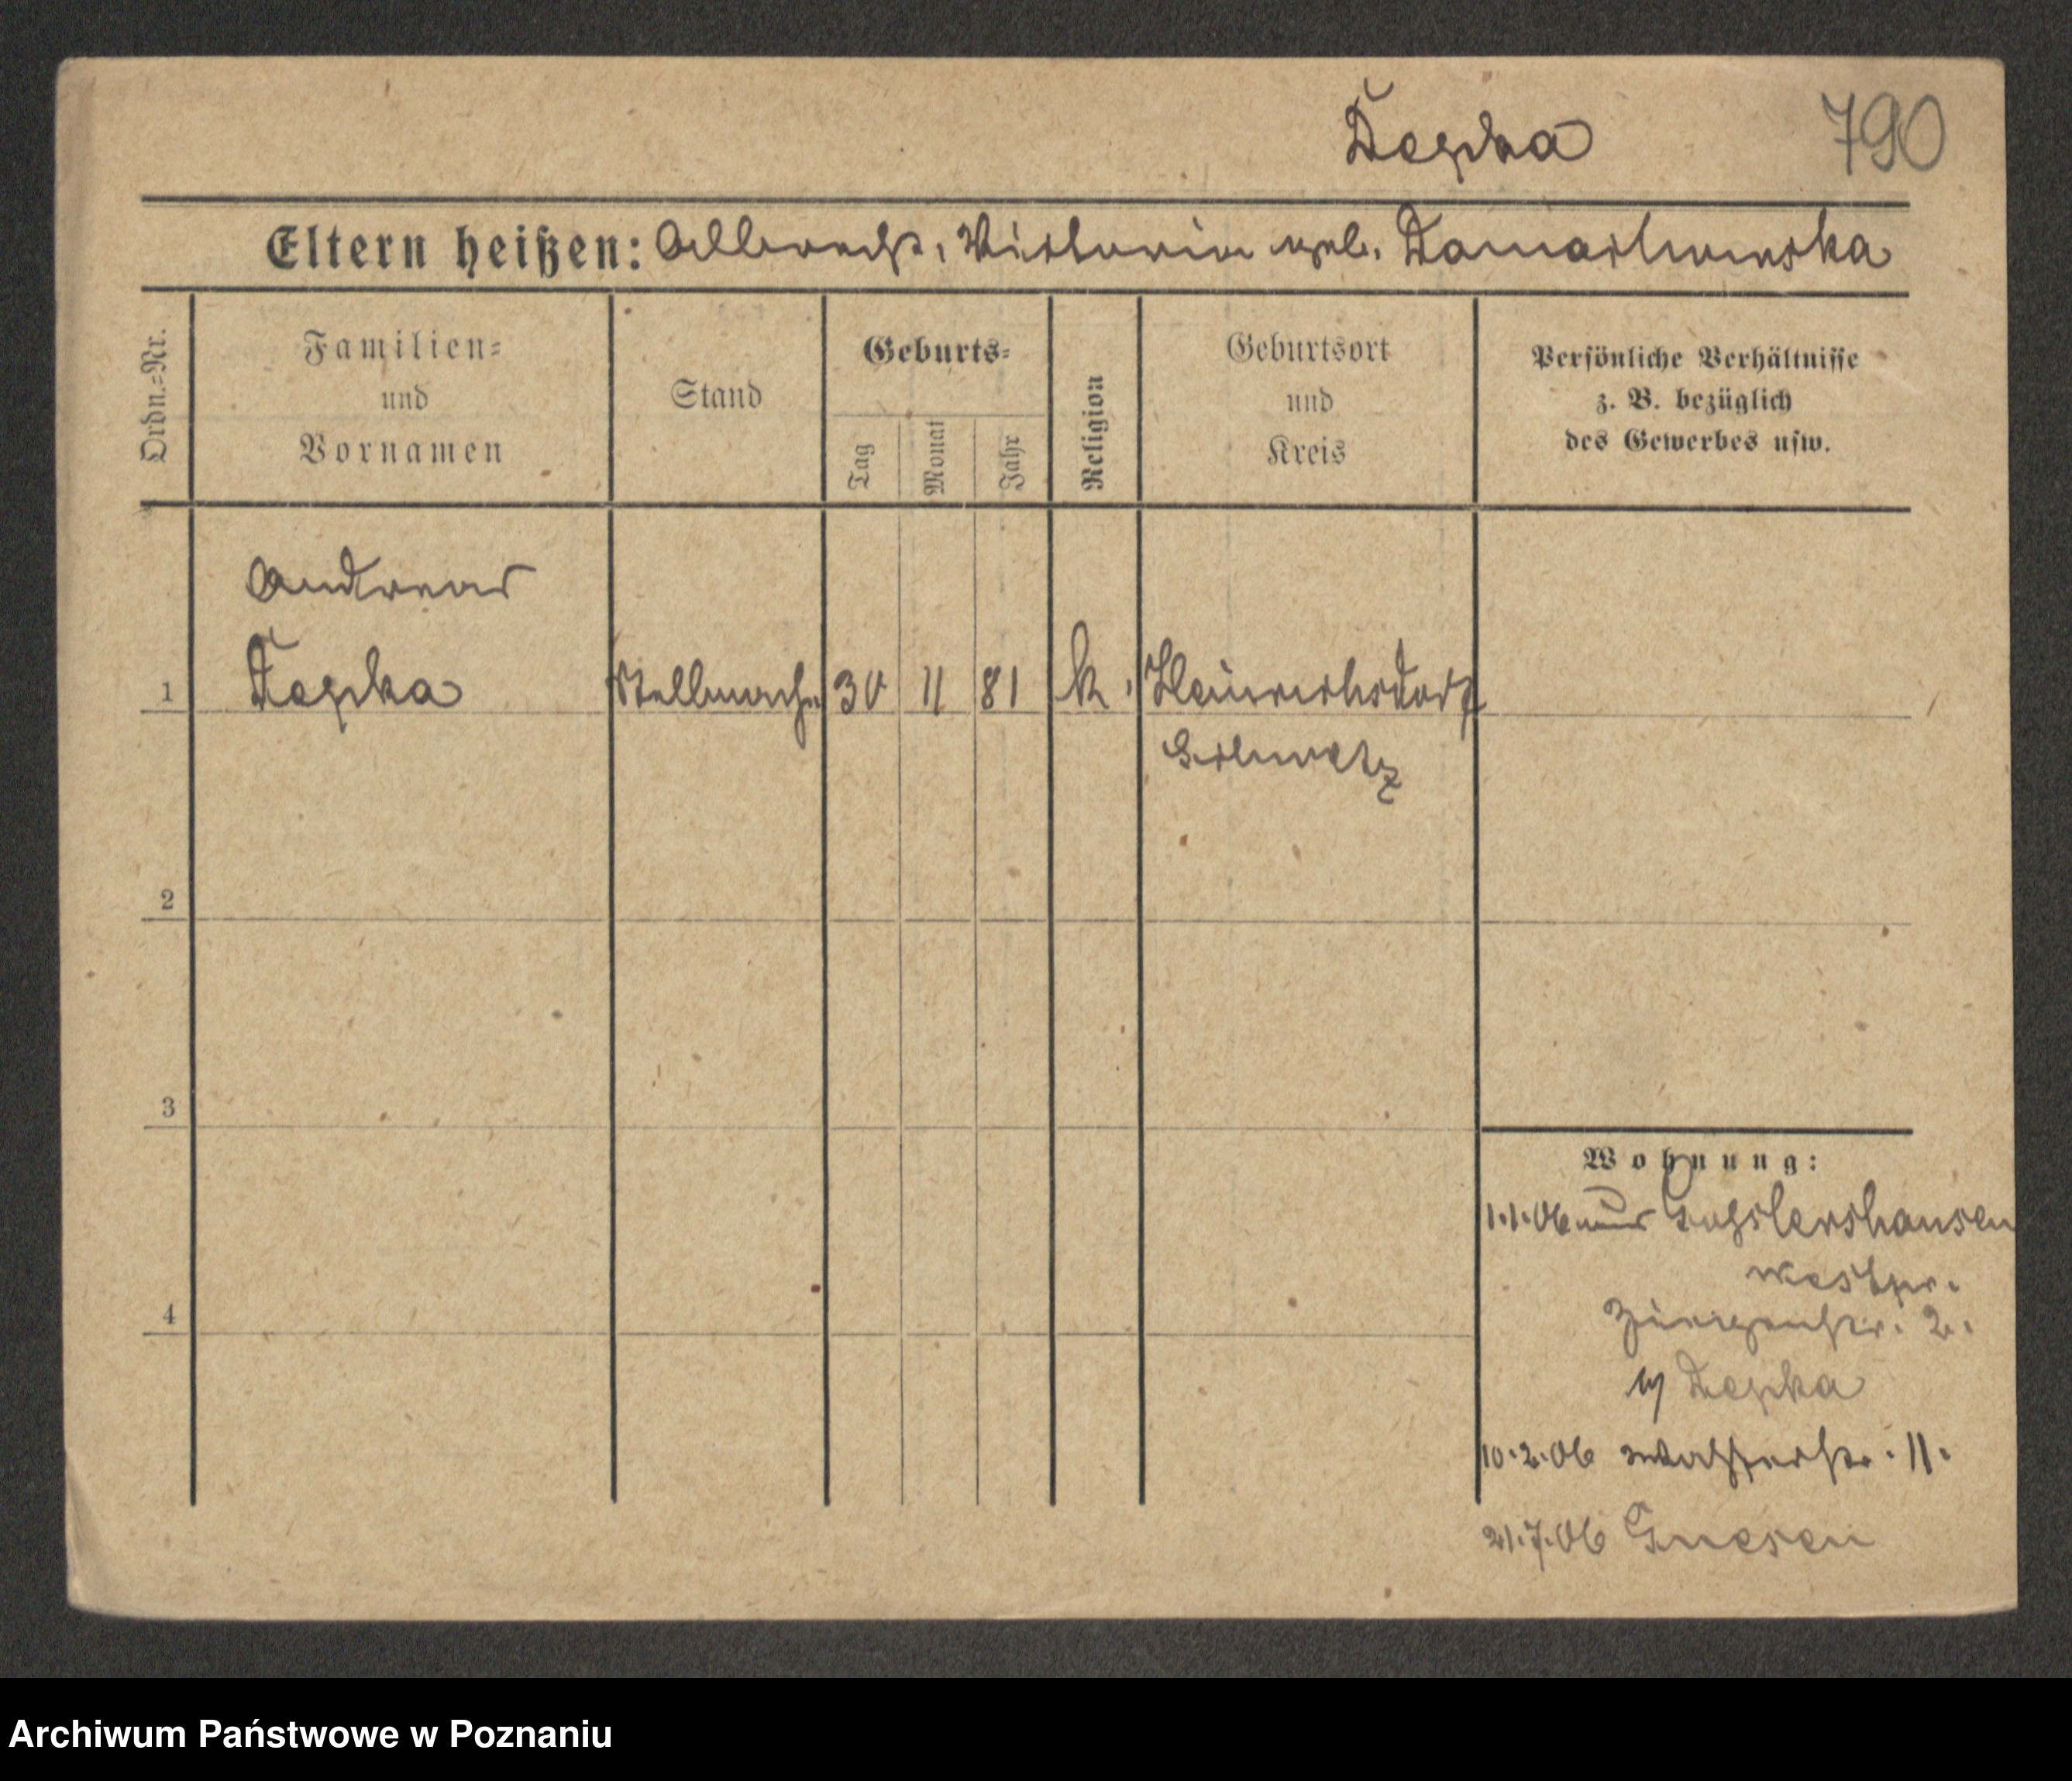 Depka 790
Eltern heißen: Albrecht, Victoria geb. Damaschewska
Ordn.=Nr.
Familien=
und
Vornamen
Stand
Geburts=
Tag
Monat
Jahr
Religion
Geburtsort
und
Kreis
Persönliche Verhältnisse
z. B. bezüglich
des Gewerbes usw.
Andreas
1 Depka Stellmacher 30 11 81 k. Heinrichsdorf
Schwetz
2
3
4
Wohnung:
1.1.06 aus Gosslershausen
Westpr.
2.
Depka
10.2.06 Wasserstr. 11.
21.7.06 Gnesen
Archiwum Państwowe w Poznaniu